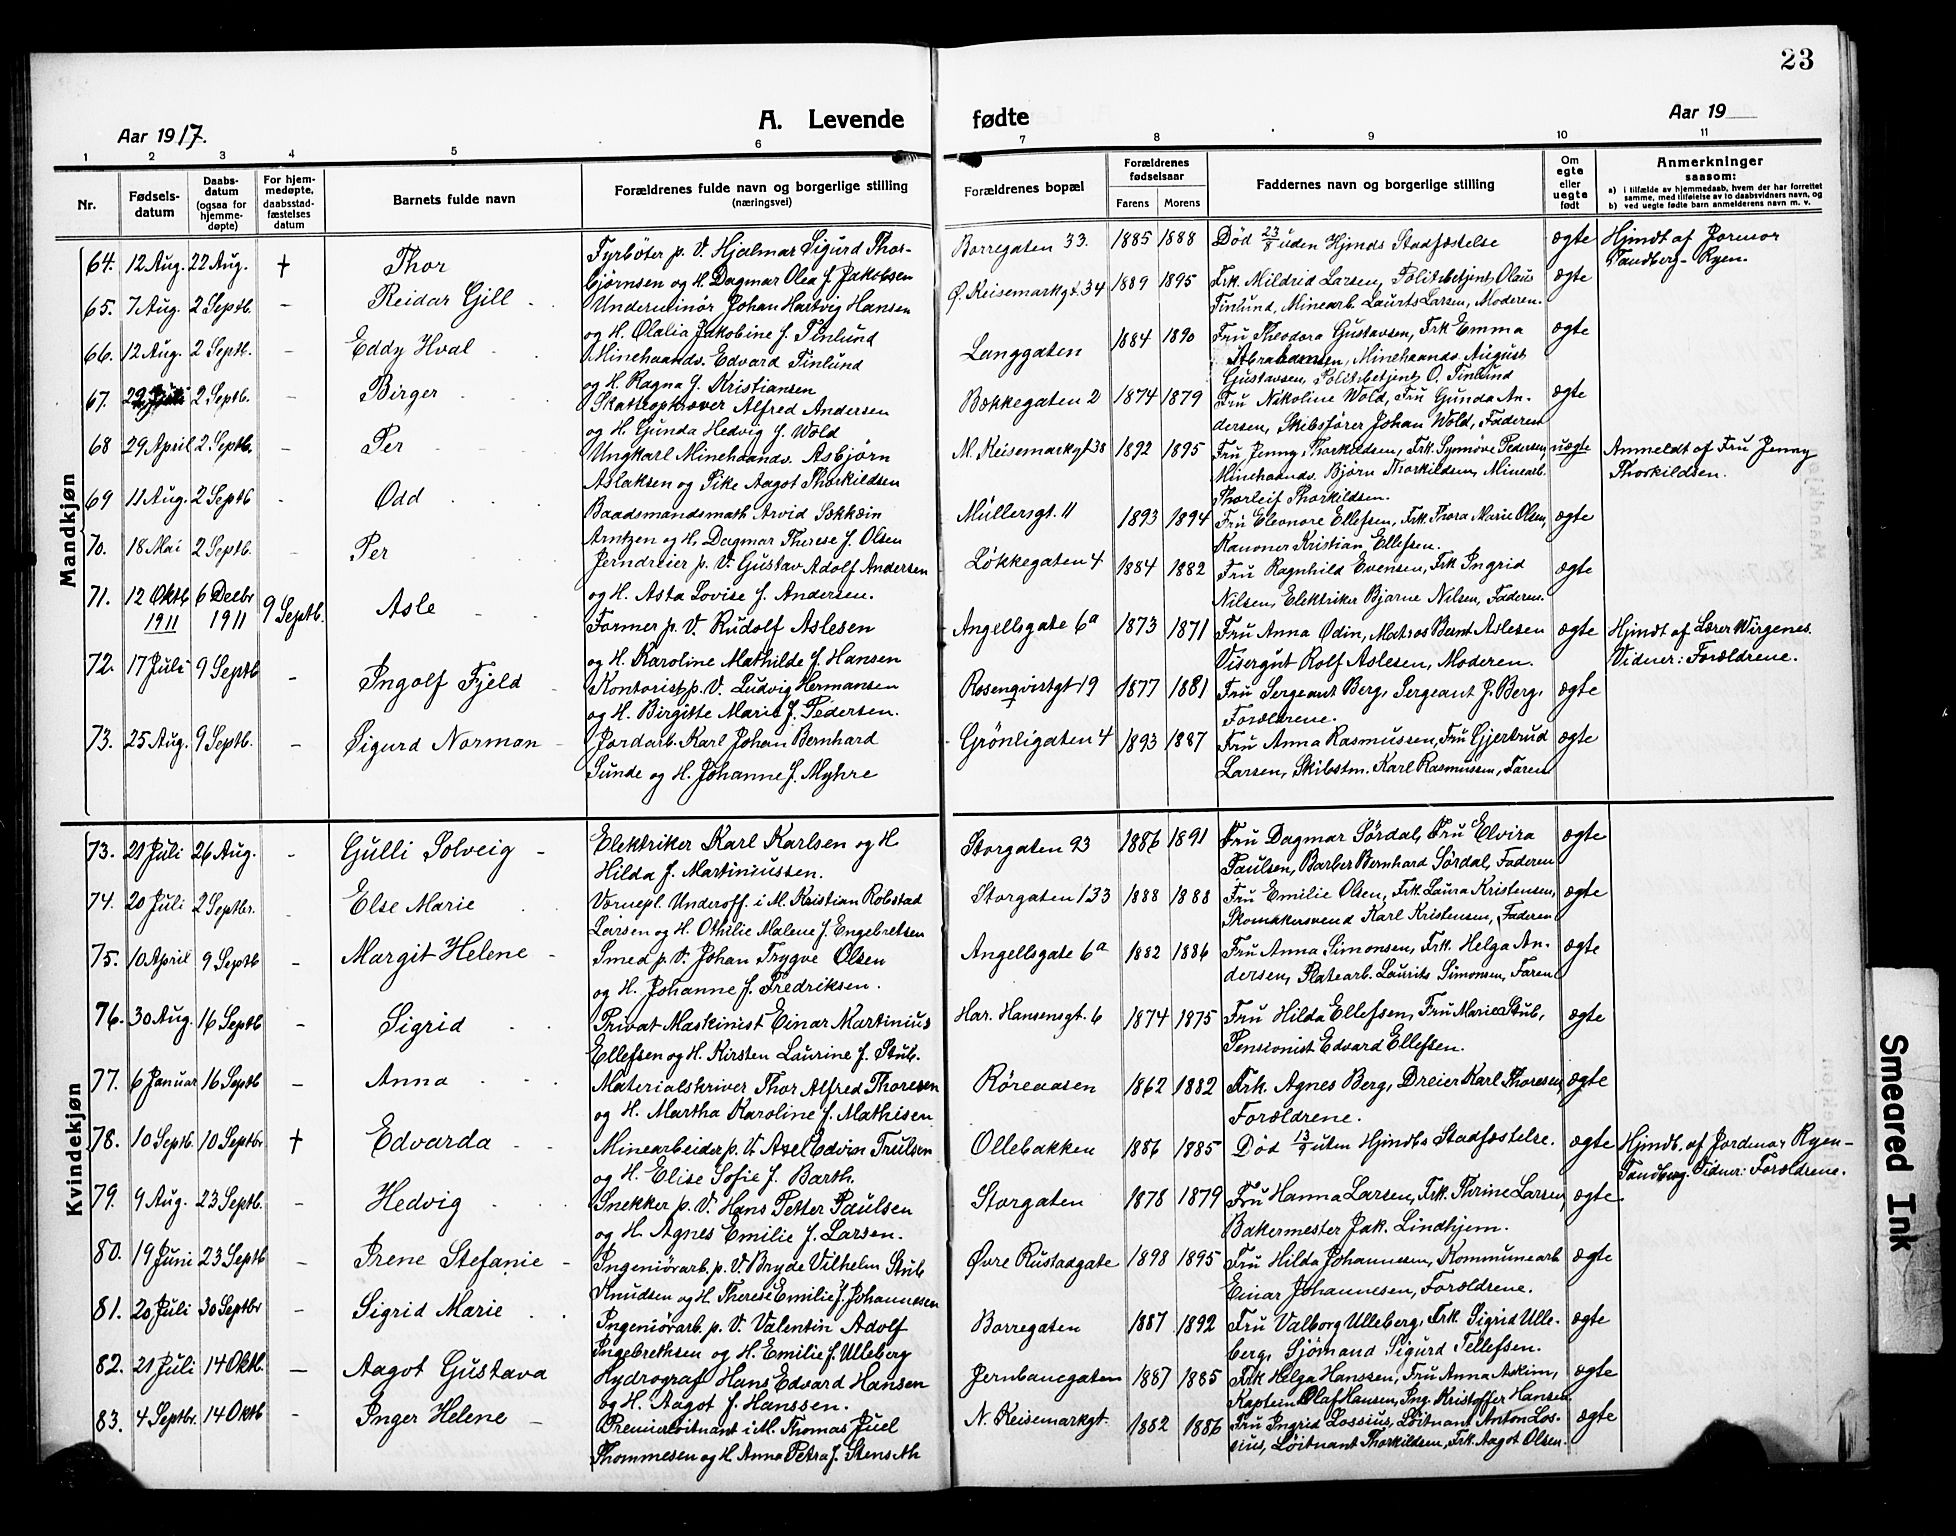 23
Aar 1917.
A. Levende fødte
Aar 19
1 2 3 4 5 6 7 8 9 10 11
Nr.
Fødsels-
datum
Daabs-
datum
(ogsaa for
hjemme-
døpte)
For hjem-
medøpte,
daabsstad-
fæstelses
datum
Barnets fulde navn
Forældrenes fulde navn og borgerlige stilling
(næringsvei)
Forældrenes bopæl
Forældrenes
fødselsaar
Farens Morens
Faddernes navn og borgerlige stilling
Om
egte
eller
uegte
født
Anmerkninger
saasom:
a) i tilfælde av hjemmedaab, hvem der har forrettet
samme, med tilføielse av to daabsvidners navn, og
b) ved uegte fødte barn anmelderens navn m. v.
Mandkjøn
64. 12 Aug. 22 Aug. † Thor
Fyrbøter p. V. Hjalmar Sigurd Thor-
bjørnsen og H. Dagmar Olea f. Jakobsen
Borregaten 33. 1885 1888
Død 23/8 uden Hjmds Stadfæstelse
ægte
Hjmdt af Jormor
Sandberg-Ryen.
65. 7 Aug. 2 Septb. - Reidar Gill
Underminør Johan Hartvig Hansen
og H. Olalia Jakobine f. Finlund
Ø. Keisemarkgt. 34 1889 1895
Frk. Mildrid Larsen, Politibetjent Olaus
Finlund, Minearb. Laurits Larsen, Moderen.
ægte
66. 12 Aug. 2 Septb. - Eddy Hval
Minehaands. Edvard Finlund
og H. Ragna f. Kristiansen
Langgaten 1884 1890
Fru Theodora Gustavsen, Frk Emma
Abrahamsen, Minehaands. August
Gustavsen, Politibetjent O. Finlund
ægte
67. 22 Juli 2 Septb. - Birger
Skatteopkræver Alfred Andersen
og H. Gunda Hedvig f. Wold
Bækkegaten 2 1874 1879
Fru Nikoline Wold, Fru Gunda An-
dersen, Skibsfører Johan Wold, Faderen
ægte
68 29 April 2 Septb. - Per
Ungkarl Minehaands. Asbjørn
Aslaksen og Pike Aagot Thorkildsen
M. Keisemarkgt 38 1892 1895
Fru Jenny Thorkildsen, Frk. Synnøve Pedersen,
Minehaands. Bjørn Thorkildsen, Minearb.
Thorleif Thorkildsen.
uægte
Anmeldt af Fru Jenny
Thorkildsen.
69 11 Aug. 2 Septb - Odd
Baadsmandsmath Arvid
Arntzen og H. Dagmar Therese f. Olsen
Müllersgt. 11 1893 1894
Fru Eleonore Ellefsen, Frk. Thora Marie Olsen,
Kanoner Kristian Ellefsen.
ægte
70. 18 Mai 2 Septb. - Per
Jerndreier p. V. Gustav Adolf Andersen
og H. Asta Lovise f. Andersen.
Løkkegaten 4 1884 1882
Fru Ragnhild Evensen, Frk Ingrid
Nilsen, Elektriker Bjarne Nilsen, Faderen.
ægte
71. 12 Oktb 1911 6 Decbr 1911 9 Septb. Asle
Former p. V. Rudolf Aslesen
og H. Karoline Mathilde f. Hansen
Angellsgate 6a 1873 1871
Fru Anna Ødin, Matros Bernt Aslesen
Visergut Rolf Aslesen, Moderen.
ægte
Hjmdt af Lærer Wirgenes.
Vidner: Forældrene.
72. 17 Juli 9 Septb - Ingolf Fjeld
Kontorist p. V. Ludvig Hermansen
og H. Birgitte Marie f. Pedersen.
Rosenqvistgt 19 1877 1881
Fru Sergeant Berg, Sergeant J. Berg,
Forældrene.
ægte
73. 25 Aug. 9 Septb. - Sigurd Norman
Jordarb. Karl Johan Bernhard
Sunde og H. Johanne f. Myhre
Grönligaten 4 1893 1887
Fru Anna Rasmussen, Fru Gjertrud
Larsen, Skibstm. Karl Rasmussen, Faren
ægte
Kvindekjøn
73. 21 Juli 26 Aug. - Gulli Solveig
Elektriker Karl Karlsen og H
Hilda f. Martiniussen.
Storgaten 93 1886 1891
Fru Dagmar Sørdal, Fru Elvira
Paulsen, Barber Bernhard Sørdal, Faderen
ægte
74. 20 Juli 2 Septbr. - Else Marie
Vernepl. Underoff. i M. Kristian Robstad
Larsen og H. Othilie Malene f. Engebretsen
Storgaten 133 1888 1888
Fru Emilie Olsen, Frk. Laura Kristensen,
Skomakersvend Karl Kristensen, Faderen
ægte
75. 10 April 9 Septb - Margit Helene
Smed p. V. Johan Trygve Olsen
og H. Johanne f. Fredriksen.
Angellsgate 6a 1882 1886
Fru Anna Simonsen, Frk. Helga An-
dersen, Platearb. Laurits Simonsen, Faren
ægte
76. 30 Aug. 16 Septb - Sigrid
Privat Maskinist Einar Martinius
Ellefsen og H. Kirsten Laurine f. Stub.
Har. Hansensgt. 6 1874 1875
Fru Hilda Ellefsen, Fru Marie Stub,
Pensionist Edvard Ellefsen.
ægte
77. 6 Januar 16 Septb - Anna
Materialskriver Thor Alfred Thoresen
og H. Martha Karoline f. Mathisen
Røreaasen 1862 1882
Frk. Agnes Berg, Dreier Karl Thoresen,
Forældrene.
ægte
78. 10 Septb. 10 Septbr † Edvarda
Minearbeider p. V. Axel Edvin Trulsen
og H. Elise Sofie f. Barth.
Ollebakken 1886 1885
Død 13/9 uten Hjmdbs Stadfæstelse.
ægte
Hjmdb. af Jordmor Ryen-
Sandberg. Vidner: Forældrene.
79. 9 Aug. 23 Septb. - Hedvig
Snekker p. V. Hans Petter Paulsen
og H. Agnes Emilie f. Larsen.
Storgaten 1878 1879
Fru Hanna Larsen, Frk. Thrine Larsen,
Bakermester Jak. Lindhjem.
ægte
80. 19 Juni 23 Septb - Irene Stefanie
Ingeniørarb. p. V. Bryde Vilhelm Stub
Knudsen og H. Therese Emilie f. Johannesen
Øvre Rustadgate 1898 1895
Fru Hilda Johannesen, Kommunearb
Einar Johannesen, Forældrene.
ægte
81. 20 Juli 30 Septbr - Sigrid Marie
Ingeniørarb. p. V. Valentin Adolf
Ingebrethsen og H. Emilie f. Ulleberg
Borregaten 1887 1892
Fru Valborg Ulleberg, Frk. Sigrid Ulle-
berg, Sjømand Sigurd Tellefsen.
ægte
82. 21 Juli 14 Oktb. - Aagot Gustava
Hydrograf Hans Edvard Hansen
og H. Aagot f. Hanssen.
Jernbanegaten 1887 1885
Frk Helga Hanssen, Fru Anna Askim,
Kaptein Olaf Hansen, Ing. Kristoffer Hansen
ægte
83. 4 Septbr. 14 Oktb - Inger Helene
Premierløitnant i M. Thomas Juel
Thommesen og H. Anna Petra f. Stenseth
N. Keisemarkgt. 1882 1886
Fru Ingrid Lossius, Løitnant Anton Los-
sius, Løitnant Thorkildsen, Frk. Aagot Olsen.
ægte
Smeared Ink